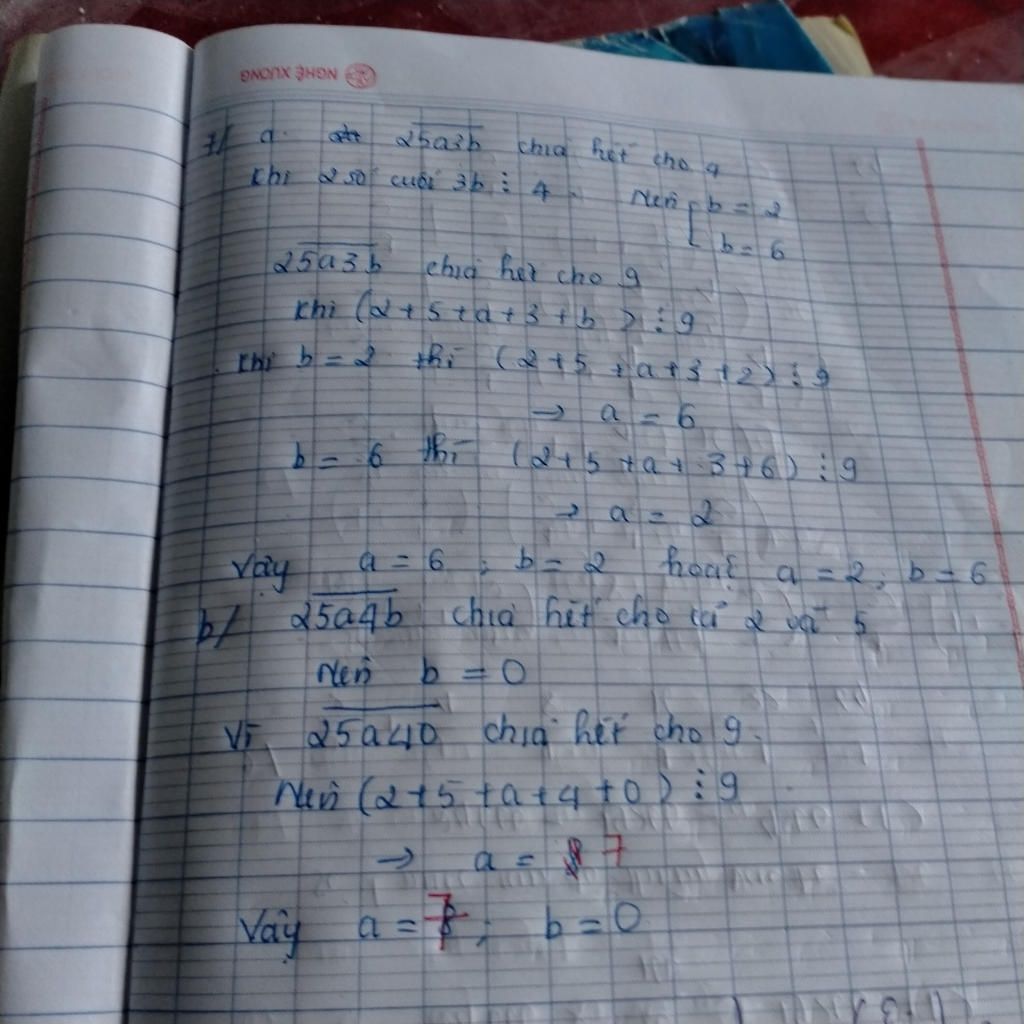 NGHỆ XUONG
7/ a. 25a3b chia hết cho 4
Khi 2 số cuối 3b ⋮ 4. Nên [ b = 2
b = 6
25a3b chia hết cho 9
Khi (2 + 5 + a + 3 + b) ⋮ 9
Khi b = 2 thì (2 + 5 + a + 3 + 2) ⋮ 9
→ a = 6
b = 6 thì (2 + 5 + a + 3 + 6) ⋮ 9
→ a = 2
Vậy a = 6 ; b = 2 hoặc a = 2; b = 6
b/ 25a4b chia hết cho cả 2 và 5
Nên b = 0
Vì 25a40 chia hết cho 9.
Nên (2 + 5 + a + 4 + 0) ⋮ 9
→ a = 7
Vậy a = 7 ; b = 0